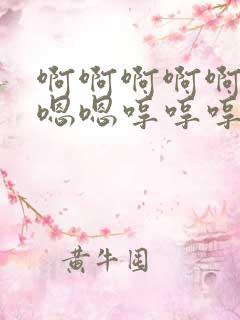 啊啊啊啊啊
嗯嗯哼哼哼
黄牛围